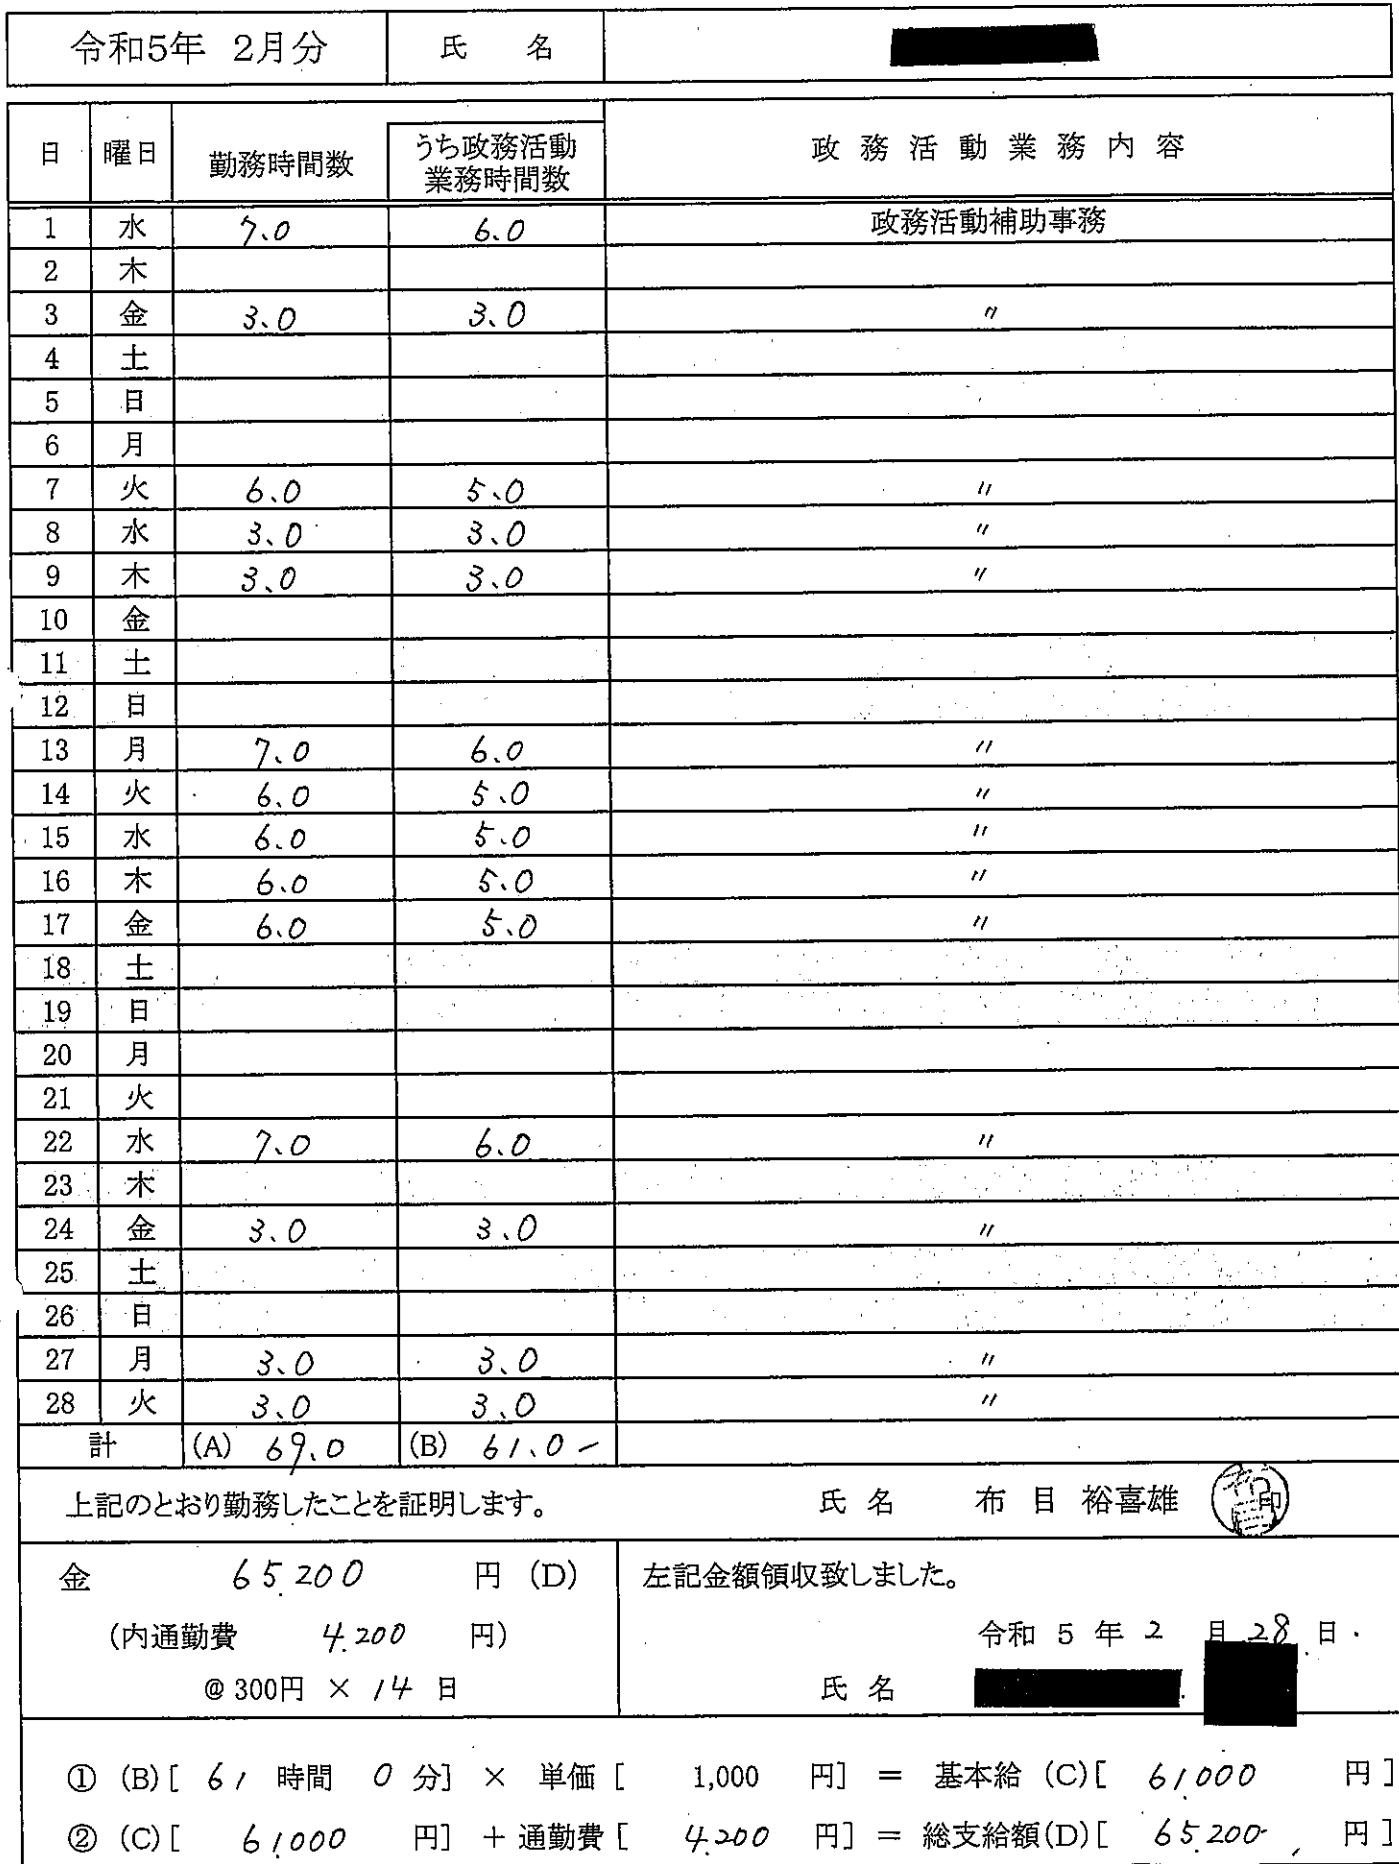 令和5年 2月分 氏 名
日 曜日 勤務時間数 うち政務活動業務時間数 政務活動業務内容
1 水 7.0 6.0 政務活動補助事務
2 木
3 金 3.0 3.0 〃
4 土
5 日
6 月
7 火 6.0 5.0 〃
8 水 3.0 3.0 〃
9 木 3.0 3.0 〃
10 金
11 土
12 日
13 月 7.0 6.0 〃
14 火 6.0 5.0 〃
15 水 6.0 5.0 〃
16 木 6.0 5.0 〃
17 金 6.0 5.0 〃
18 土
19 日
20 月
21 火
22 水 7.0 6.0 〃
23 木
24 金 3.0 3.0 〃
25 土
26 日
27 月 3.0 3.0 〃
28 火 3.0 3.0 〃
計 (A) 69.0 (B) 61.0
上記のとおり勤務したことを証明します。 氏 名 布 目 裕喜雄 印
金 65.200 円 (D) 左記金額領収致しました。
(内通勤費 4.200 円) 令和 5 年 2 月 28 日
@300円 × 14 日 氏 名
① (B)[ 61 時間 0 分] × 単価 [ 1,000 円] = 基本給 (C)[ 61,000 円]
② (C)[ 61,000 円] + 通勤費 [ 4.200 円] = 総支給額(D)[ 65.200 円]